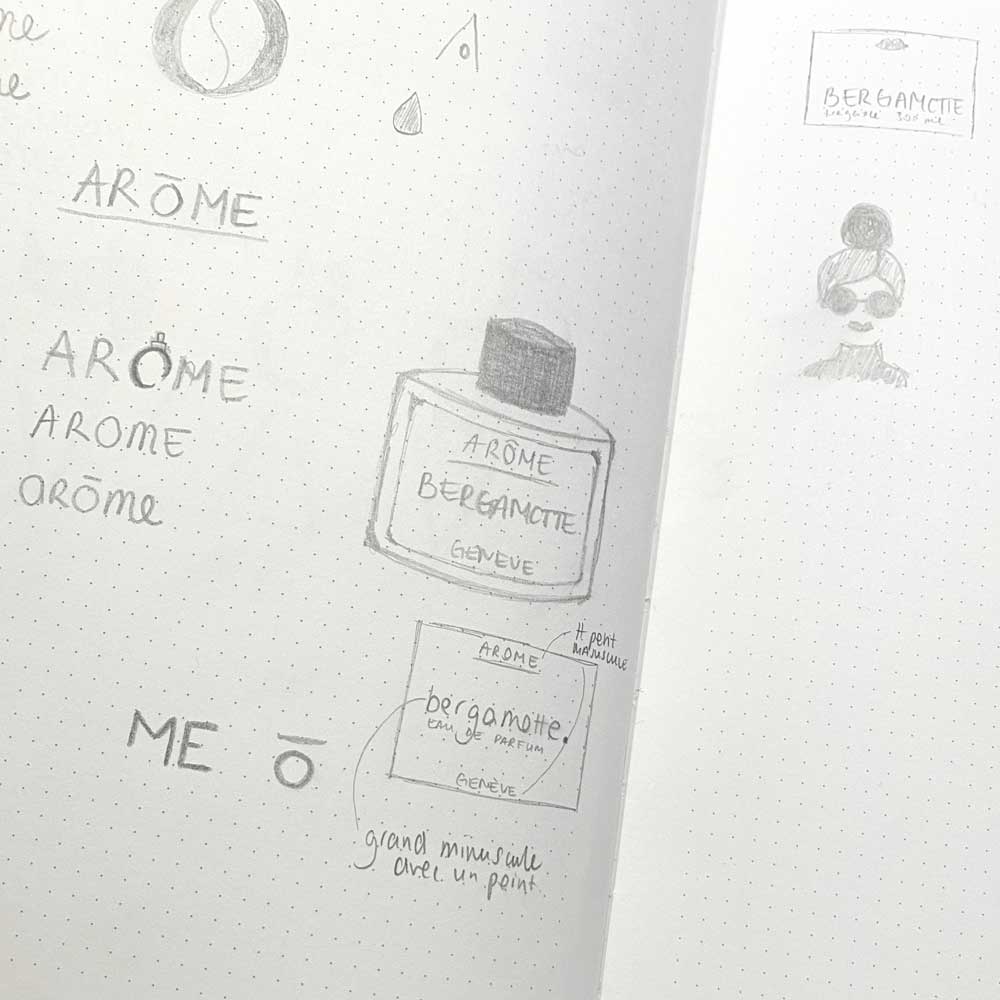 ne
ne
A
ARŌME
ARÔME
AROME
arōme
ARŌME
BERGAMOTTE
GENEVE
AROME
bergamotte.
EAU DE PARFUM
GENÈVE
tt petit
MAJUSCULE
grand minuscule
avec un point
ME ō
BERGAMOTTE
300 ml